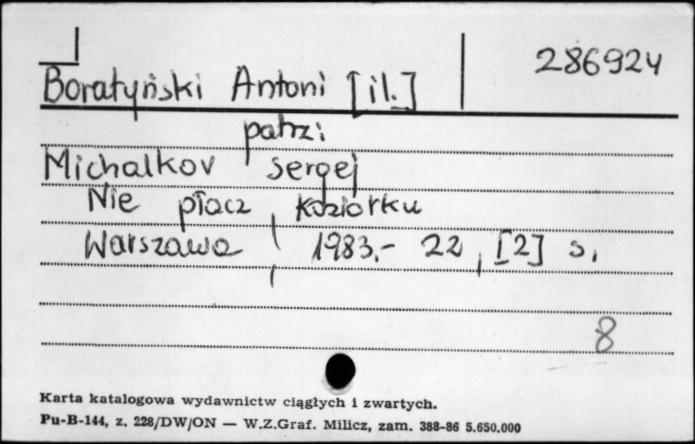 286924
Boratyński Antoni [il.]
patrz:
Michalkov Sergej
Nie płacz, koziorku
Warszawa, 1983.- 22, [2] s.
8
Karta katalogowa wydawnictw ciągłych i zwartych.
Pu-B-144, z. 228/DW/ON — W.Z.Graf. Milicz, zam. 388-86 5.650.000